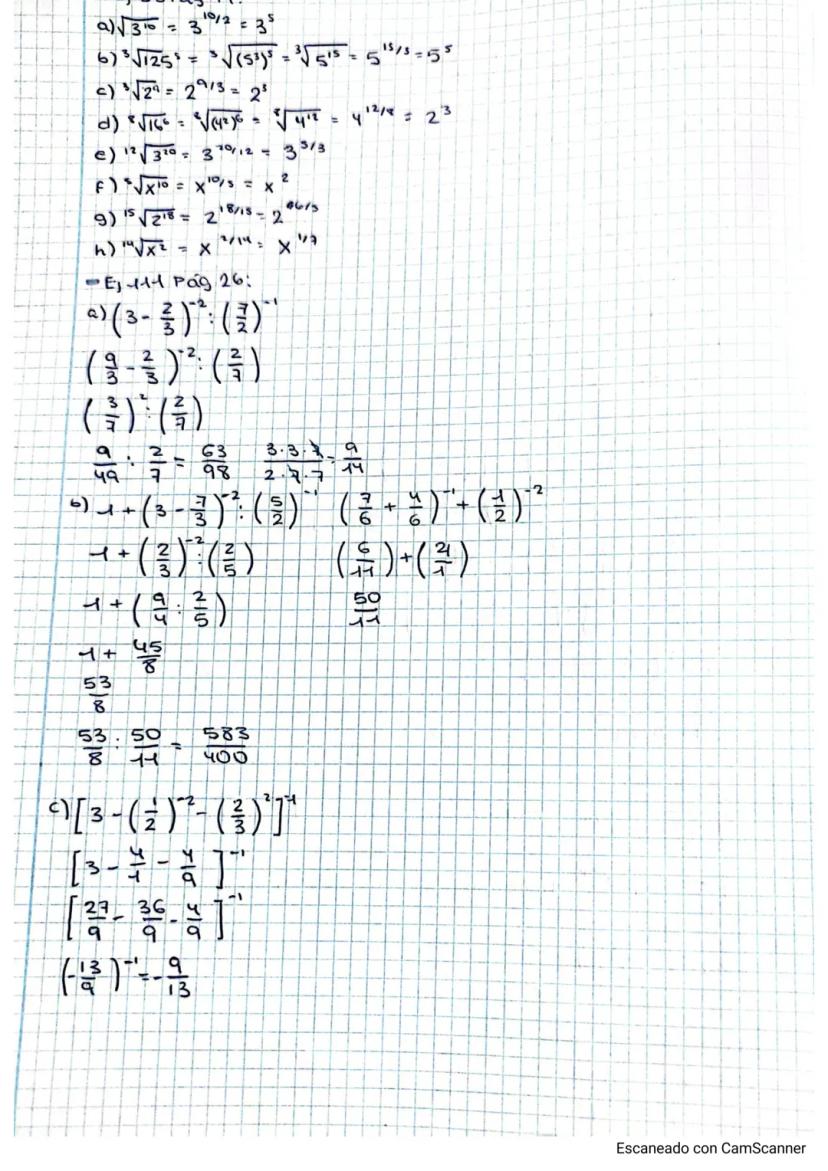 a) √3¹⁰ = 3^10/2 = 3⁵
b) ³√125⁵ = ³√(5³)⁵ = ³√5¹⁵ = 5^15/3 = 5⁵
c) ³√2⁹ = 2^9/3 = 2³
d) ⁸√16⁶ = ⁸√(4²)⁶ = ⁸√4¹² = 4^12/8 = 2³
e) ¹²√3²⁰ = 3^20/12 = 3^5/3
f) ⁵√x¹⁰ = x^10/5 = x²
g) ¹⁵√2¹⁸ = 2^18/15 = 2^6/5
h) ¹⁴√x² = x^2/14 = x^1/7
- Ej 111 Pág 26:
a) (3 - 2/3)⁻² : (7/2)⁻¹
(9/3 - 2/3)⁻² : (2/7)
(3/7)² : (2/7)
9/49 : 2/7 = 63/98 3·3·7/2·7·7 = 9/14
b) 1 + (3 - 7/3)⁻² : (5/2)⁻¹ (7/6 + 4/6)⁻¹ + (1/2)⁻²
1 + (2/3)⁻² : (2/5) (6/11) + (4/1)
1 + (9/4 : 2/5) 50/11
1 + 45/8
53/8
53/8 : 50/11 = 583/400
c) [3 - (1/2)⁻² - (2/3)²]⁻¹
[3 - 4/1 - 4/9]⁻¹
[27/9 - 36/9 - 4/9]⁻¹
(-13/9)⁻¹ = -9/13
Escaneado con CamScanner